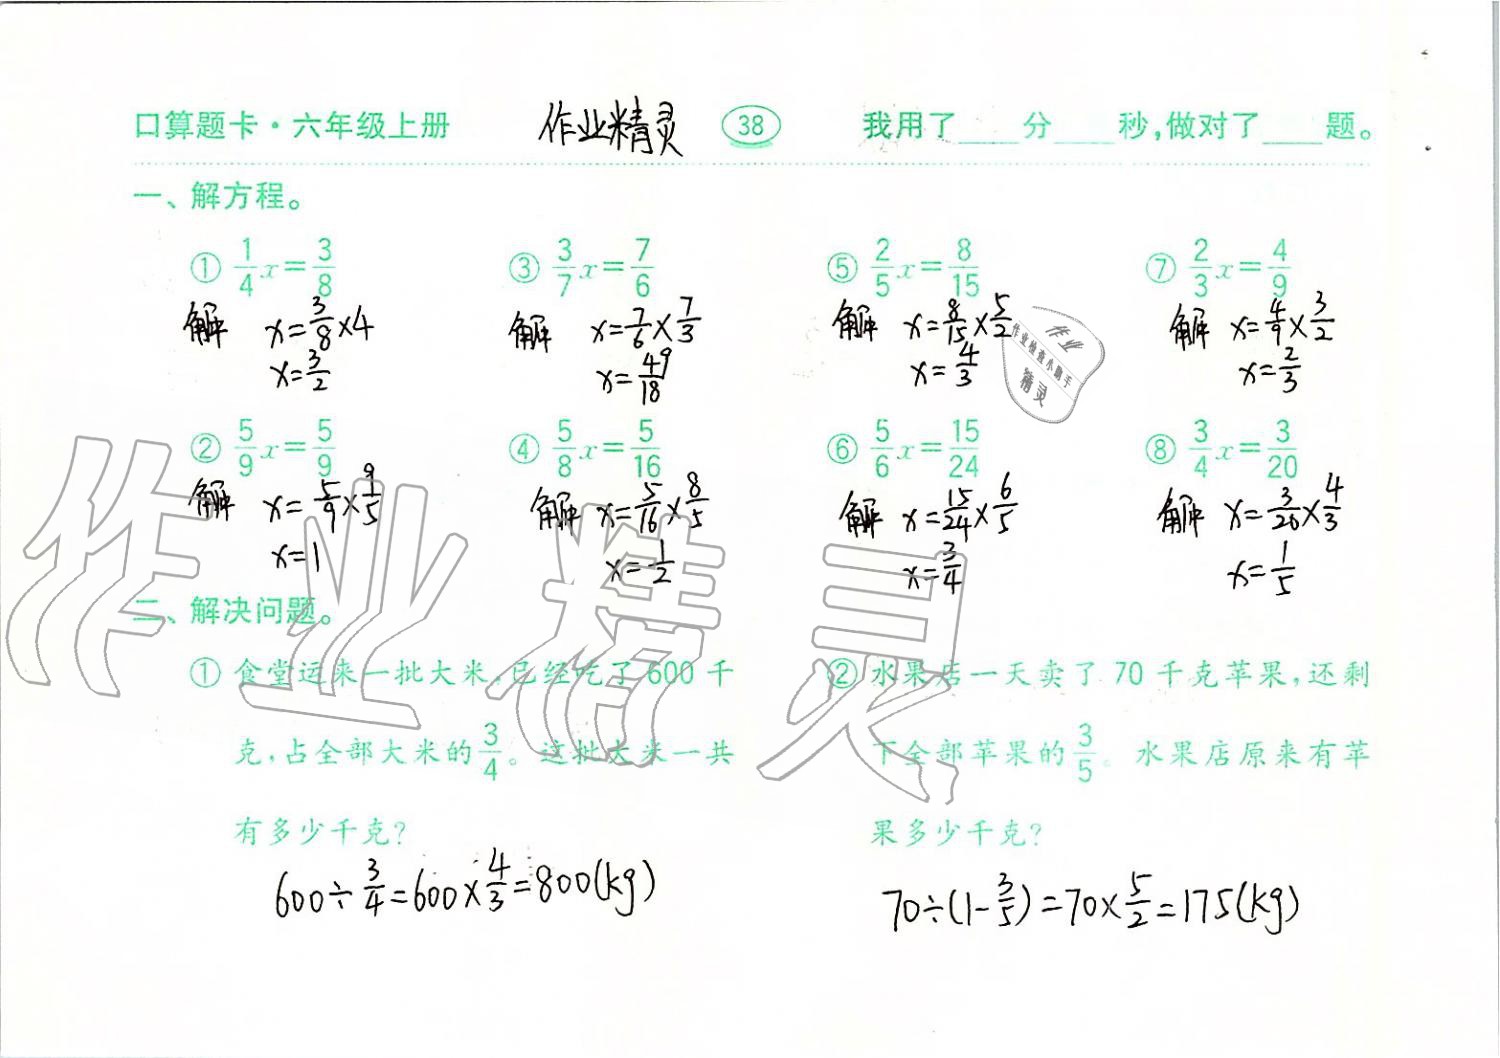 口算题卡·六年级上册 作业精灵 38 我用了____分____秒,做对了____题。
一、解方程。
① 1/4 x=3/8 ③ 3/7 x=7/6 ⑤ 2/5 x=8/15 ⑦ 2/3 x=4/9
解 x=3/8×4 解 x=7/6×7/3 解 x=8/15×5/2 解 x=4/9×3/2
x=3/2 x=49/18 x=4/3 x=2/3
作业
作业检查小助手
精灵
② 5/9 x=5/9 ④ 5/8 x=5/16 ⑥ 5/6 x=15/24 ⑧ 3/4 x=3/20
解 x=5/9×9/5 解 x=5/16×8/5 解 x=15/24×6/5 解 x=3/20×4/3
x=1 x=1/2 x=3/4 x=1/5
作业精灵
二、解决问题。
① 食堂运来一批大米,已经吃了600千
克,占全部大米的3/4。这批大米一共
有多少千克?
600÷3/4=600×4/3=800(kg)
② 水果店一天卖了70千克苹果,还剩
下全部苹果的3/5。水果店原来有苹
果多少千克?
70÷(1-3/5)=70×5/2=175(kg)